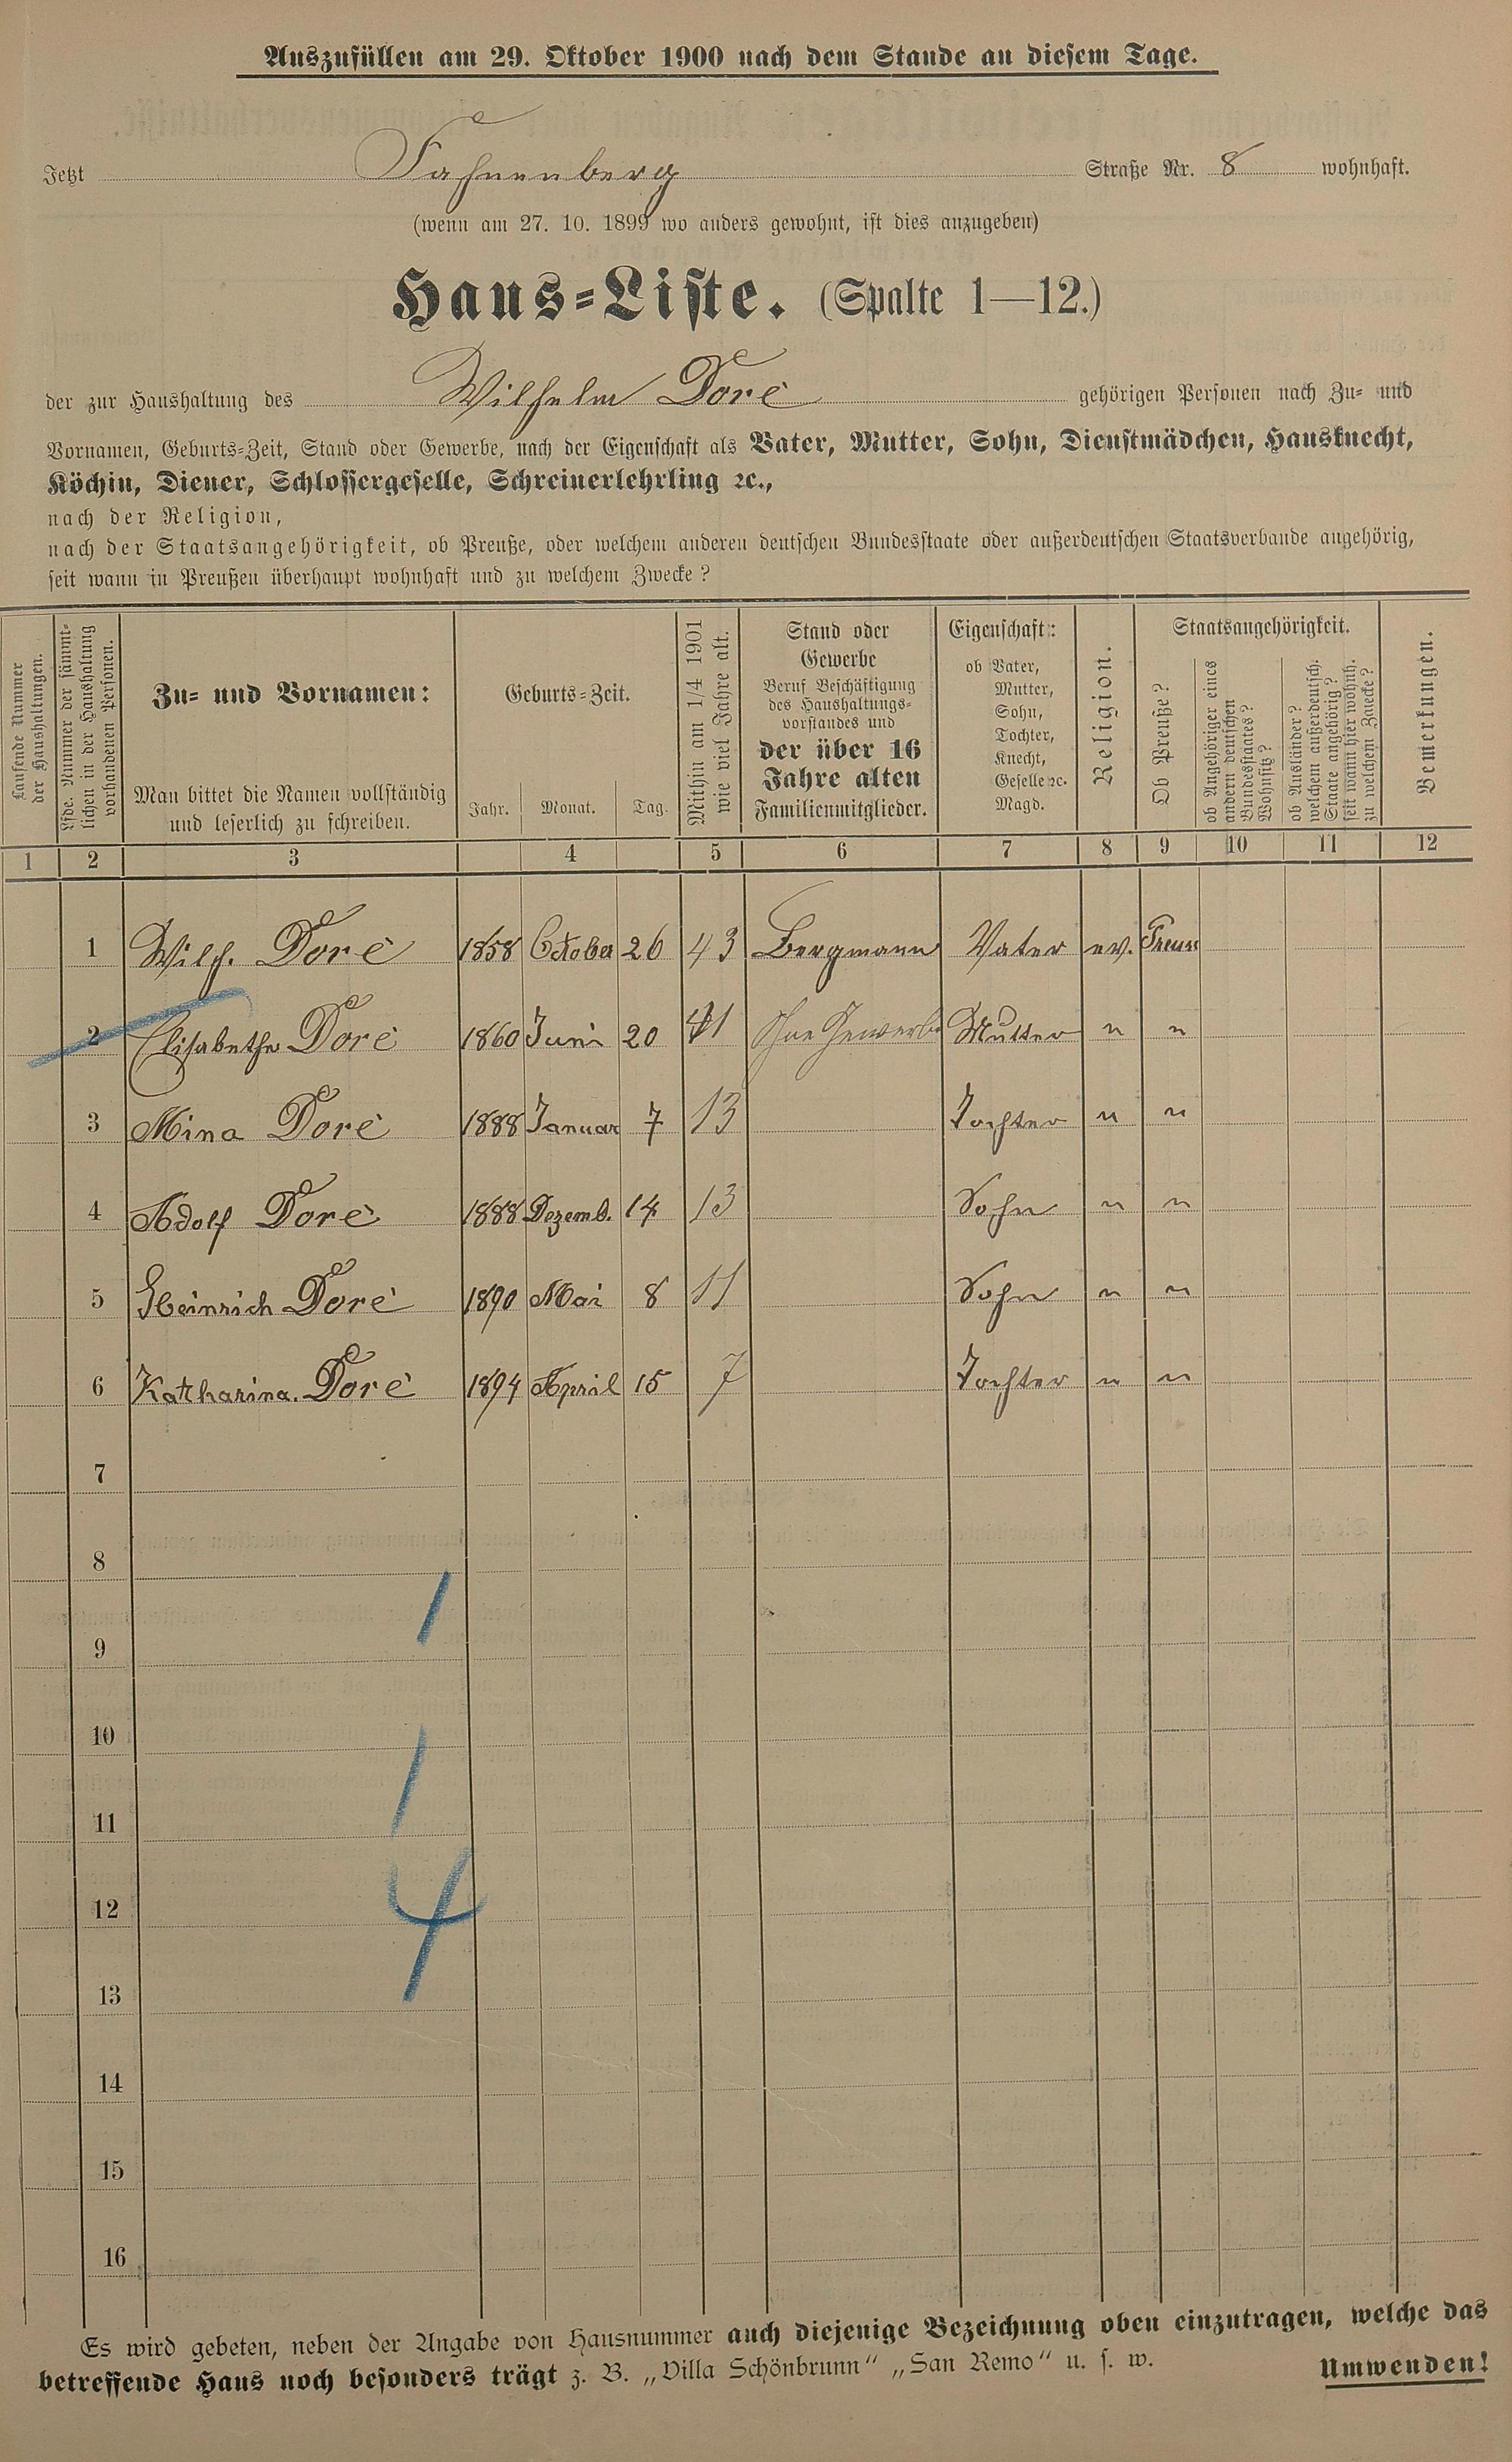 Auszufüllen am 29. Oktober 1900 nach dem Stande an diesem Tage.
Jetzt Fahnenberg Straße Nr. 8 wohnhaft.
(wenn am 27. 10. 1899 wo anders gewohnt, ist dies anzugeben)
Haus-Liste. (Spalte 1—12.)
der zur Haushaltung des Wilhelm Doré gehörigen Personen nach Zu- und
Vornamen, Geburts-Zeit, Stand oder Gewerbe, nach der Eigenschaft als Vater, Mutter, Sohn, Dienstmädchen, Hausknecht,
Köchin, Diener, Schlossergeselle, Schreinerlehrling ꝛc.,
nach der Religion,
nach der Staatsangehörigkeit, ob Preuße, oder welchem anderen deutschen Bundesstaate oder außerdeutschen Staatsverbande angehörig,
seit wann in Preußen überhaupt wohnhaft und zu welchem Zwecke?
Laufende Nummer
der Haushaltungen.
Lfde. Nummer der sämmt-
lichen in der Haushaltung
vorhandenen Personen.
Zu- und Vornamen:
Man bittet die Namen vollständig
und leserlich zu schreiben.
Geburts-Zeit.
Jahr. Monat. Tag.
Mithin am 1/4 1901
wie viel Jahre alt.
Stand oder
Gewerbe
Beruf Beschäftigung
des Haushaltungs-
vorstandes und
der über 16
Jahre alten
Familienmitglieder.
Eigenschaft:
ob Vater,
Mutter,
Sohn,
Tochter,
Knecht,
Geselle ꝛc.
Magd.
Religion.
Staatsangehörigkeit.
Ob Preuße?
ob Angehöriger eines
andern deutschen
Bundesstaates?
Wohnsitz?
ob Ausländer?
welchem außerdeutsch.
Staate angehörig?
seit wann hier wohnh.
zu welchem Zwecke?
Bemerkungen.
1 2 3 4 5 6 7 8 9 10 11 12
1 Wilh. Doré 1858 October 26 43 Bergmann Vater ev. Preuss
2 Elisabethe Doré 1860 Juni 20 41 Ohne Gewerbe Mutter " "
3 Mina Doré 1888 Januar 7 13 Tochter " "
4 Adolf Doré 1888 Dezemb. 14 13 Sohn " "
5 Heinrich Doré 1890 Mai 8 11 Sohn " "
6 Katharina. Doré 1894 April 15 7 Tochter " "
7
8
1
9
10
1
11
12
4
13
14
15
16
Es wird gebeten, neben der Angabe von Hausnummer auch diejenige Bezeichnung oben einzutragen, welche das
betreffende Haus noch besonders trägt z. B. „Villa Schönbrunn“ „San Remo“ u. s. w.
Umwenden!